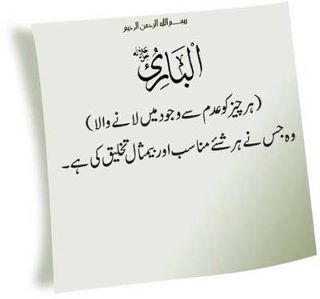 بسم الله الرحمن الرحيم
الْبَارِئُ
(ہر چیز کو عدم سے وجود میں لانے والا)
وہ جس نے ہر شئے مناسب اور بیمثال تخلیق کی ہے۔